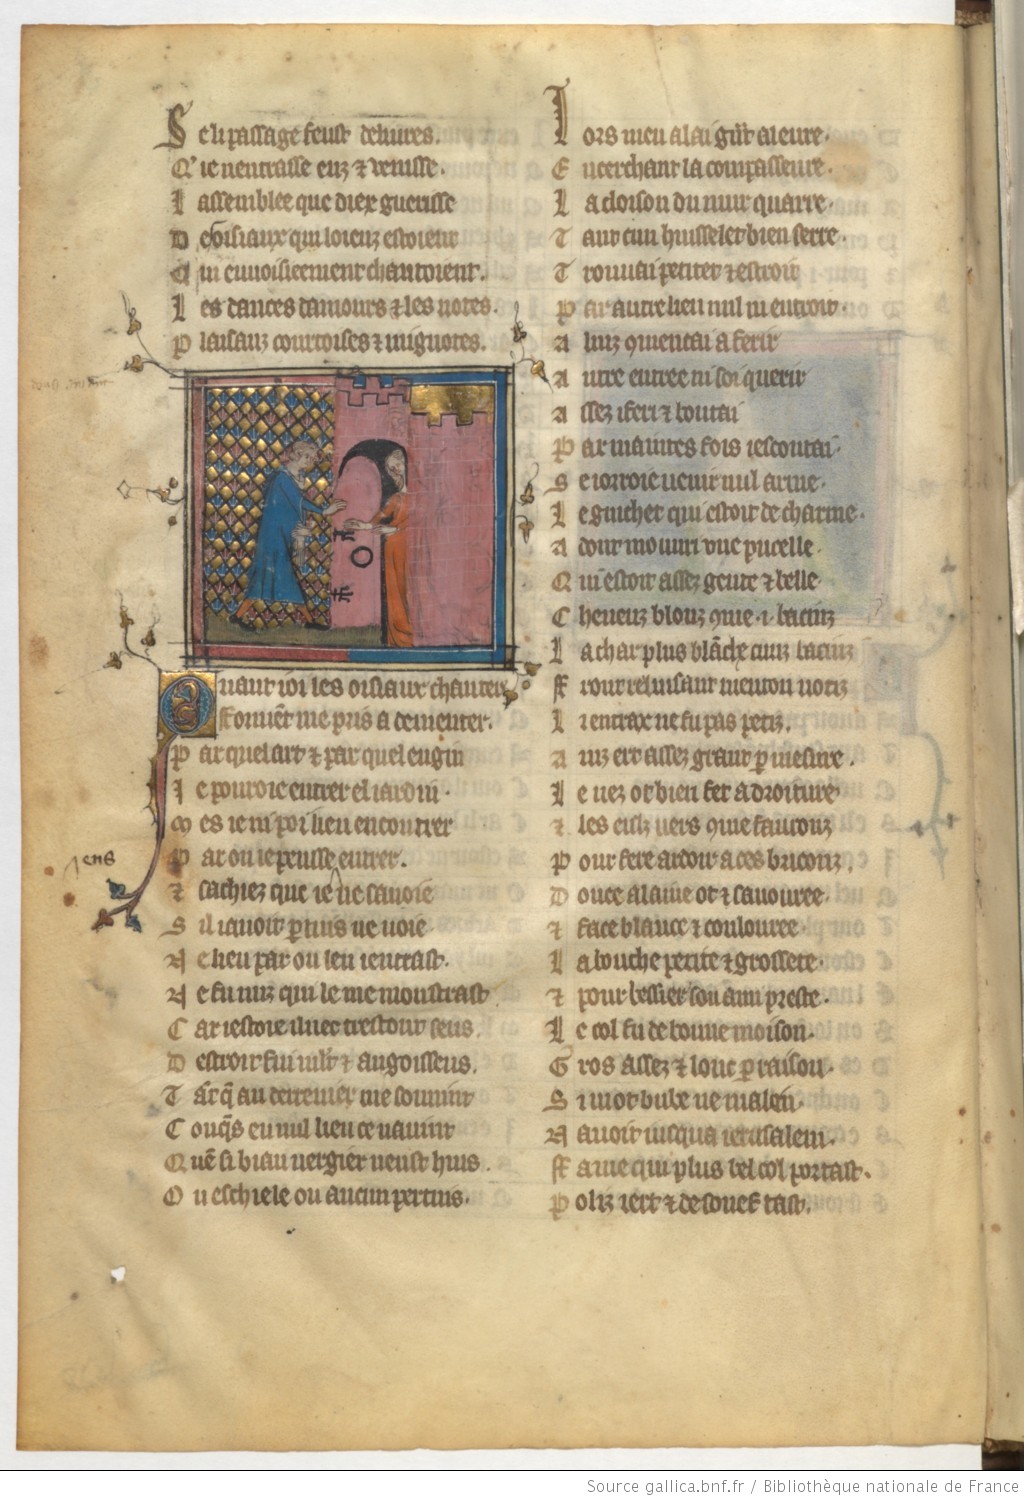 Se li passage feust deliures.
Q' ie nentrasse enz & venisse.
L assemblee que diex guerisse
D e oisiaux qui loienz estoient
Q ui enuoisieement chantoient.
L es dances damours & les notes.
P laisanz courtoises & mignotes.
Quant ioi les oisiaux chanter
Fomēt me pris a dementer.
P ar quel art & par quel engin
I e pouroie entrer el iardin.
M es ie ni poi lieu encontrer
P ar ou ie peusse entrer.
iens
& sachiez que ie ne sauoie
S il i auoit ptuis ne uoie
N e lieu par ou len i entrast.
N e fu nuz qui le me monstrast
C ar iestoie iluec trestout seus.
D estroit fui mlt & angoisseus.
T āt q̄ au derrenier me souuint
C onq̄s en nul lieu ce nauint
Q uē si biau uergier neust huis.
O u eschiele ou aucun pertuis.
Lors men alai gn̄t aleure.
E ncerchant la compasseure
L a cloison du mur quarre.
T ant cun huisselet bien serre.
T rouuai petitet & estroit
P ar autre lieu nul ni entroit.
A luiz 9mencai a ferir
A utre entree ni soi querir
A ssez i feri & boutai
P ar maintes fois iescoutai
S e iorroie uenir nul arme.
L e guichet qui estoit de charme.
A dont mouuri vne pucelle.
Q ui estoit assez gente & belle
C heueuz blonz 9me .i. bacinz
L a char plus blāche cuns bacinz
F ront reluisant menton uotiz
L ientrax ne fu pas petiz.
A inz ert assez grant p mesure.
L e nez ot bien fet a droiture
& les eulz uers 9me faucons
P our fere ardoir a ces bricons.
D ouce alaine ot & sauouree.
& face blance & coulouree
L a bouche petite & grossete.
& pour bessier son ami preste.
L e col fu de bonne moison.
G ros assez & lonc p raison.
S i not bube ne malen.
N auoit iusqua ierusalem.
F ame qui plus bel col portast.
P oliz iert & de souef tast.
Source gallica.bnf.fr / Bibliothèque nationale de France